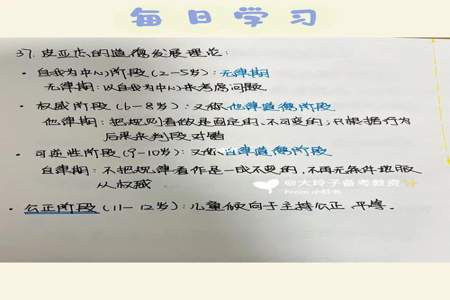 每日学习
37. 皮亚杰的道德发展理论:
· 自我为中心阶段(2-5岁): 无律期
无律期: 以自我为中心来考虑问题
· 权威阶段(6-8岁): 又称他律道德阶段
他律期: 把规则看做是固定的、不可变的,只根据行为
后果来判段对错
· 可逆性阶段(9-10岁): 又称自律道德阶段
自律期: 不把规律看作是一成不变的,不再无条件地服
从权威
@大玲子备考教资
From 小红书
· 公正阶段(11-12岁): 儿童倾向于主持公正、平等。